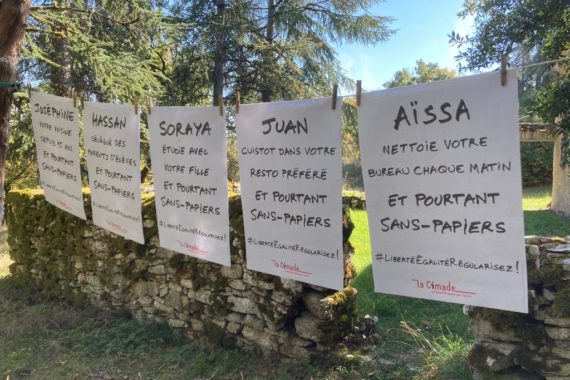 JOSÉPHINE
VOTRE VOISINE
DEPUIS 15 ANS
ET POURTANT
SANS-PAPIERS
#LIBERTÉÉGALITÉRÉGULARISEZ!
HASSAN
DÉLÉGUÉ DES
PARENTS D'ÉLÈVES
ET POURTANT
SANS-PAPIERS
#LIBERTÉÉGALITÉRÉGULARISEZ!
la Cimade
SORAYA
ÉTUDIE AVEC
VOTRE FILLE
ET POURTANT
SANS-PAPIERS
#LIBERTÉÉGALITÉRÉGULARISEZ!
la Cimade
JUAN
CUISTOT DANS VOTRE
RESTO PRÉFÉRÉ
ET POURTANT
SANS-PAPIERS
#LIBERTÉÉGALITÉRÉGULARISEZ!
la Cimade
AÏSSA
NETTOIE VOTRE
BUREAU CHAQUE MATIN
ET POURTANT
SANS-PAPIERS
#LIBERTÉÉGALITÉRÉGULARISEZ!
la Cimade